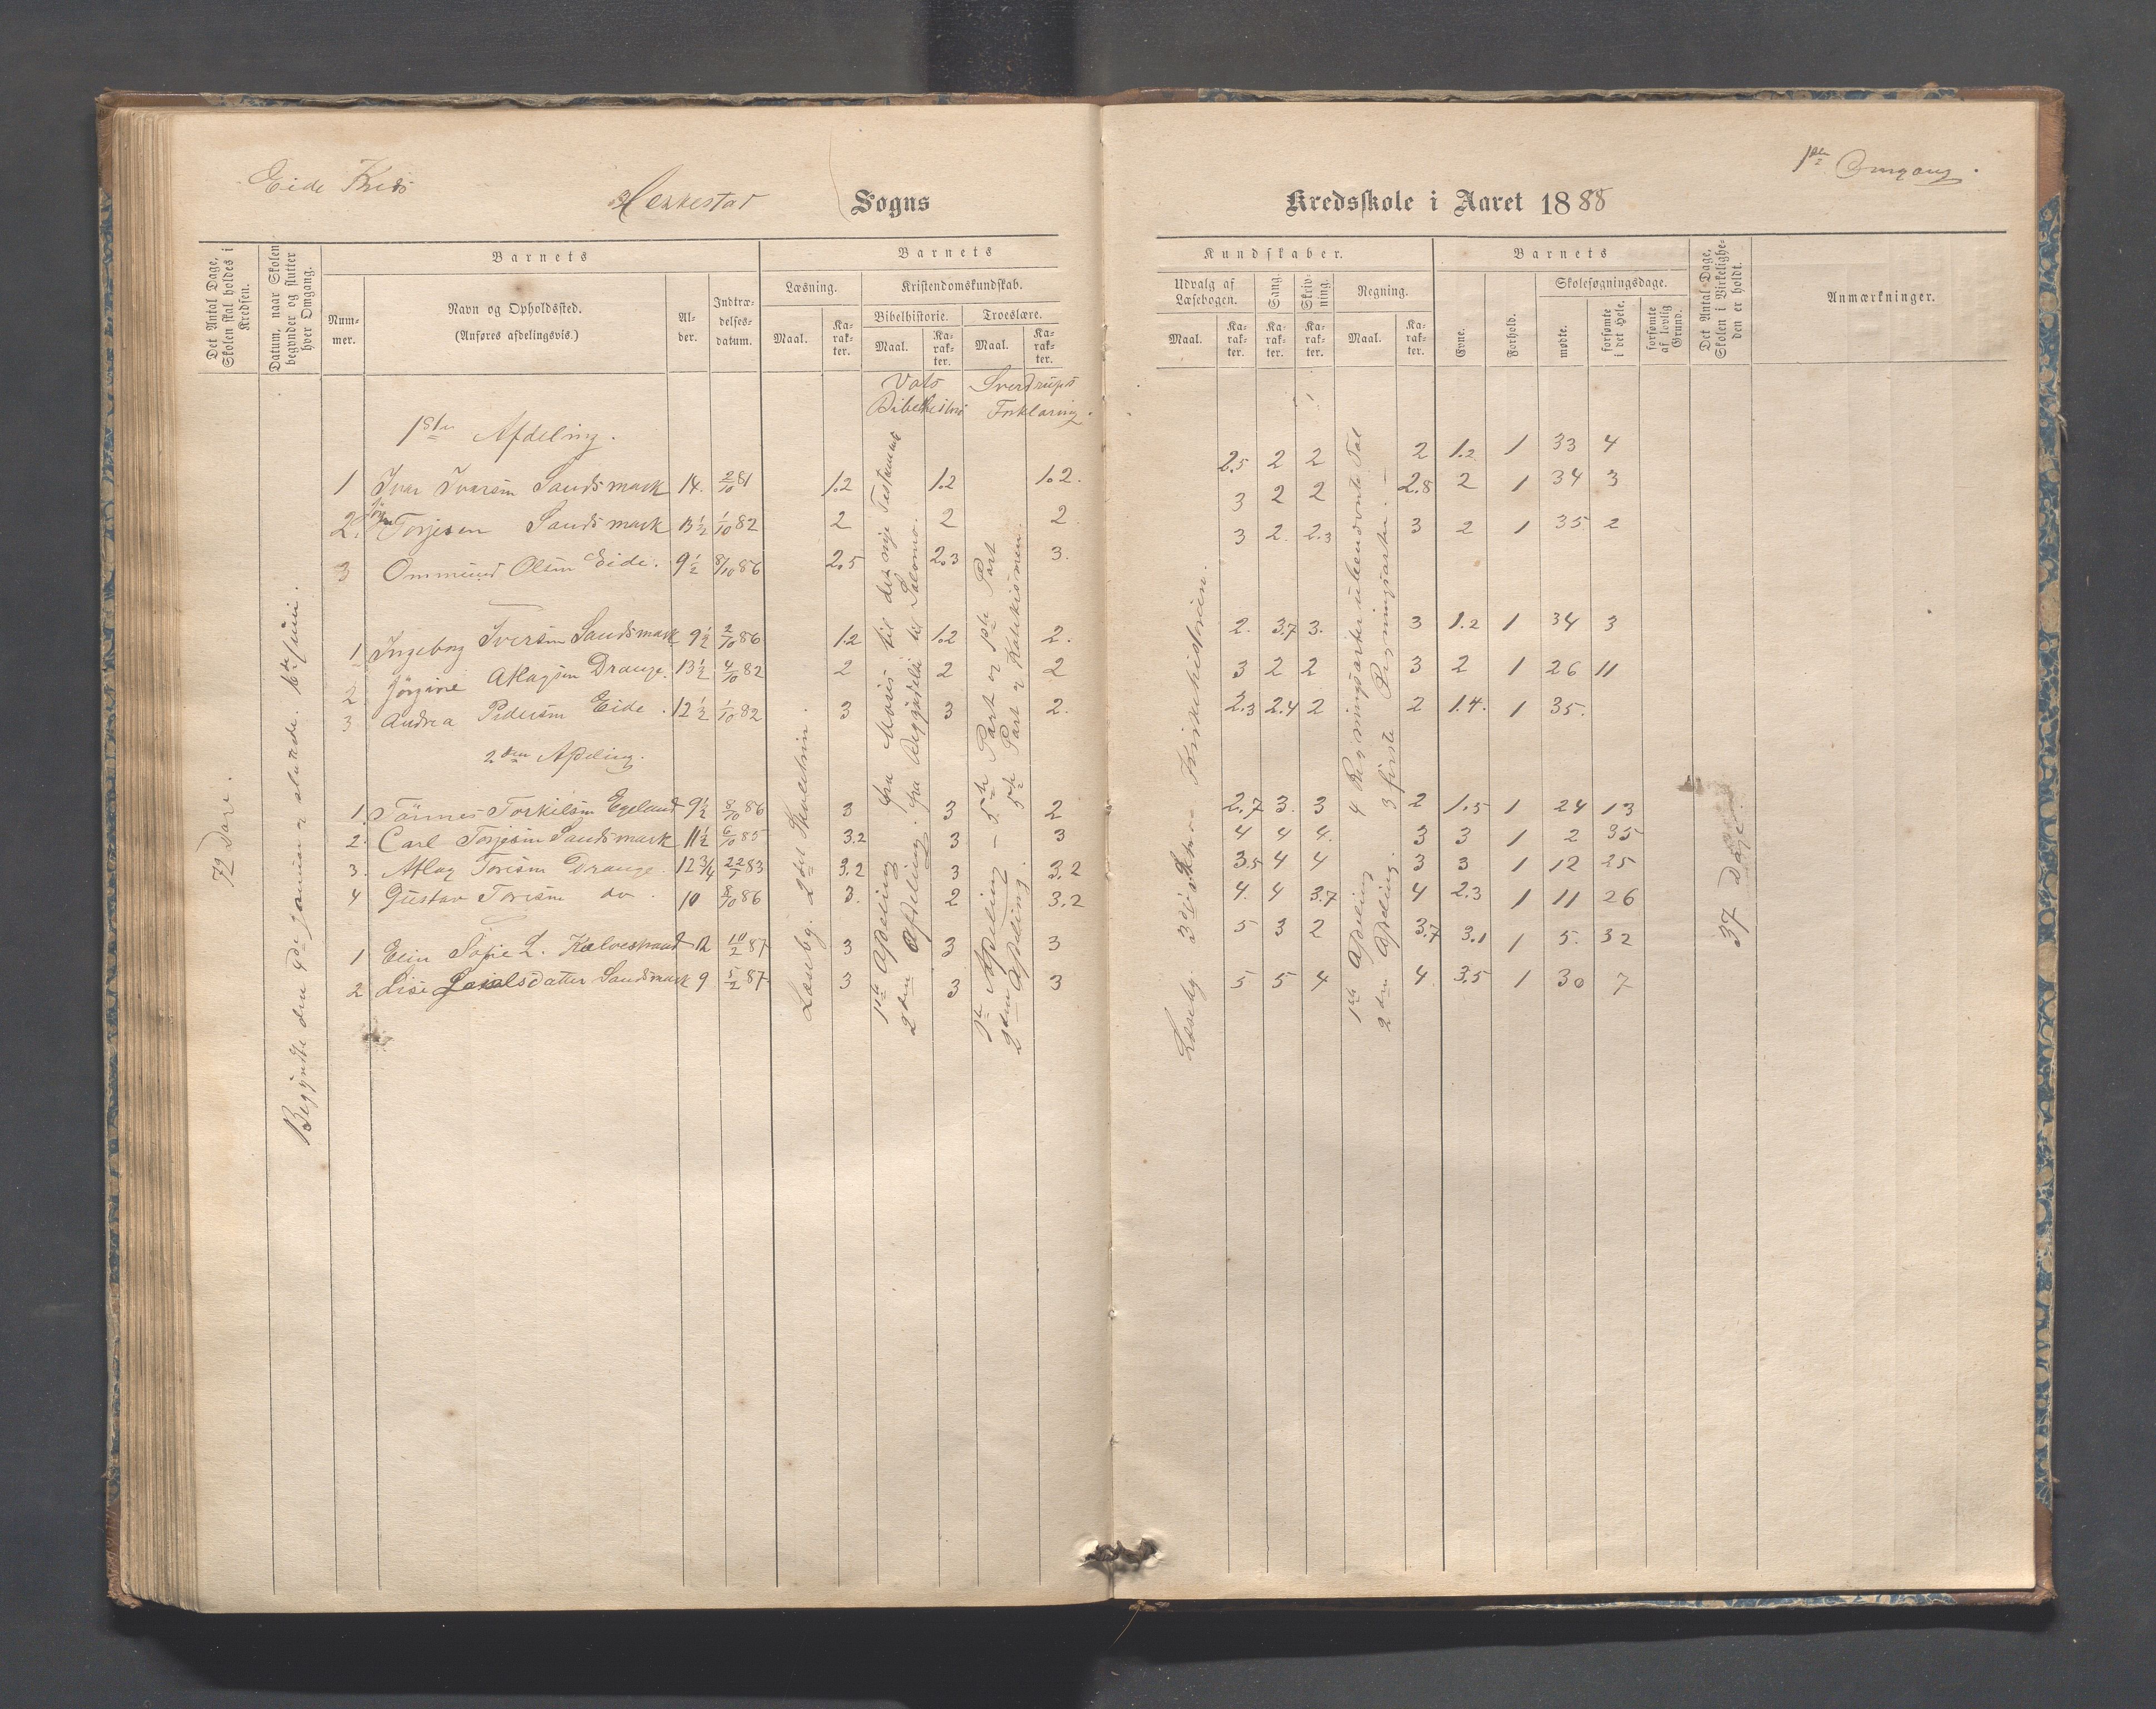 Eide Kreds
Heskestad Sogns
Kredsskole i Aaret 1888
1ste Omgang.
Det Antal Dage, Skolen skal holdes i Kredsen.
Datum, naar Skolen begynder og slutter hver Omgang.
Barnets
Nummer.
Navn og Opholdssted.
(Anføres afdelingsvis.)
Alder.
Indtrædelsesdatum.
Barnets
Læsning.
Maal.
Karakter.
Kristendomskundskab.
Bibelhistorie.
Maal.
Karakter.
Troeslære.
Maal.
Karakter.
Kundskaber.
Udvalg af Læsebogen.
Maal.
Karakter.
Sang.
Karakter.
Skrivning.
Karakter.
Regning.
Maal.
Karakter.
Barnets
Evne.
Forhold.
Skolesøgningsdage.
mødte.
forsømte i det Hele.
forsømte af lovlig Grund.
Det Antal Dage, Skolen i Virkeligheden er holdt.
Anmærkninger.
Vogts Bibelhistorie
Sverdrups Forklaring.
1ste Afdeling.
1 Ivar Ivarsen Sandsmark 14. 2/10 81 1.2 1.2 1.2. 2.5 2 2 2 1.2 1 33 4
2. Torjesen Sandsmark 13 1/2 1/10 82 2 2 2. 3 2 2 2.8 2 1 34 3
3 Ommund Olsen Eide. 9 1/2 8/10 86 2.5 2.3 3. 3 2. 2.3 3 2 1 35 2
1 Ingeborg Iversen Sandsmark 9 1/2 2/10 86 1.2 1.2 2. 2. 3.7 3. 3 1.2 1 34 3
2 Jørgine Aslagsen Drange. 13 1/2 4/10 82 2 2 2 3 2 2 3 2 1 26 11
3 Andrea Pedersen Eide. 12 1/2 1/10 82 3 3 2. 2.3 2.4 2 2 1.4. 1 35.
2den Afdeling.
1. Tönnes Torkilsen Egeland 9 1/2 8/10 86 3 3 2 2.7 3. 3 2 1.5 1 24 13
2. Carl Torjesen Sandsmark 11 1/2 6/10 85 3.2 3 3 4 4 4. 3 3 1 2 35
3. Aslag Toresen Drange. 12 3/4 22/7 83 3.2 3 3.2 3.5 4 4 3 3 1 12 25
4 Gustav Toresen do. 10 8/10 86 3. 2 3.2 4. 4 3.7 4 2.3 1 11 26
1 Elin Sofie L. Kalvestrand 12 10/2 87 3 3 3 5 3 2 3.7 3.1 1 5. 32
2 Lise Jakobsdatter Sandsmark 9 5/2 87 3 3 3 5 5 4 4 3.5 1 30 7
72 Dage.
Begyndte den 9de januar og sluttede 16de juni.
Læsebg. 2det Skoletrin.
1ste Afdeling fra Moses til det nye Testamente
2den Afdeling fra Begyndelse til Salomo.
1ste Afdeling - 5te Part og 1ste Part
2den Afdeling. 5te Part og Katekismen.
Læsebg. 3die Kirkehistorien.
1ste Afdeling 4 Regningsarter i ubenævnte Tal
2den Afdeling. 3 første Regningsarter. -
37 Dage.